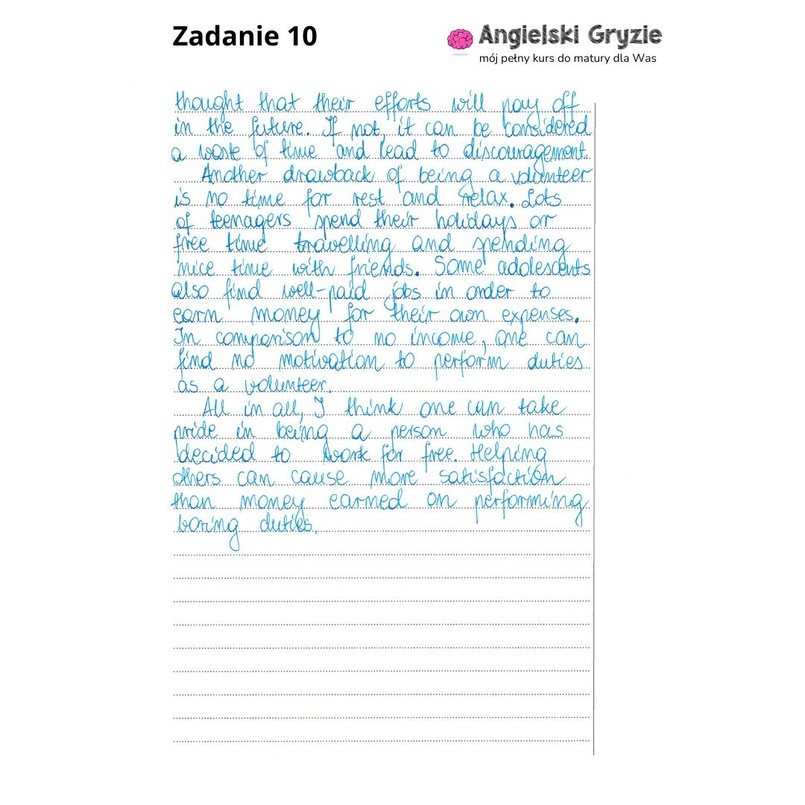 Zadanie 10
Angielski Gryzie
mój pełny kurs do matury dla Was
thought that their efforts will pay off
in the future. If not, it can be considered
a waste of time and lead to discouragement.
Another drawback of being a volunteer
is no time for rest and relax. Lots
of teenagers spend their holidays or
free time travelling and spending
nice time with friends. Some adolescents
also find well-paid jobs in order to
earn money for their own expenses.
In comparison to no income, one can
find no motivation to perform duties
as a volunteer.
All in all, I think one can take
pride in being a person who has
decided to work for free. Helping
others can cause more satisfaction
than money earned on performing
boring duties.